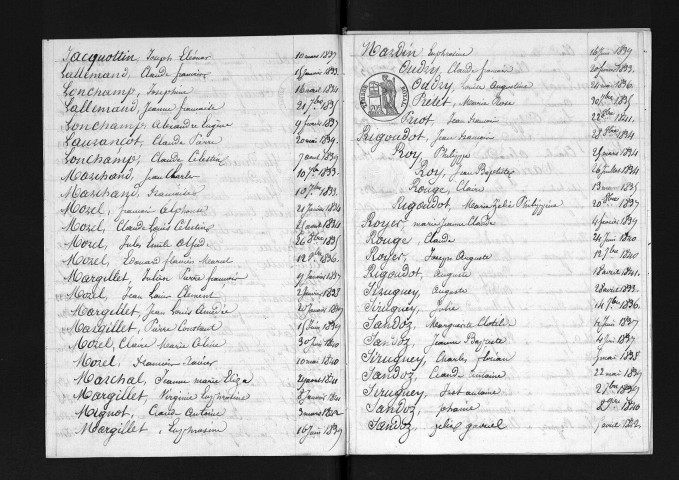 Jacquottin Joseph Eléonor 10 mars 1837
Lallemand, Claude francois 15 Janvier 1833
Lonchamp, Josephine 16 avril 1834
Lallemand, Jeanne francoise 21 7bre 1835
Lonchamp, Alexandre Eugène 9 fevrier 1837
Laurançot, Claude Pierre 20 mai 1839
Lonchamp, Claude Célestin 7 avril 1839
Marchand, Jean Charles 10 7bre 1833
Marchand, 10 7bre 1833
Morel, francois Alphonse 21 Janvier 1834
Morel, Claude Louis Célestin avril 1834
Morel, Jules Emile Alfred 26 8bre 1835
Morel, Léonard flavien Marcel 12 9bre 1836
Margillet, Julien Pierre francois 19 Janvier 1837
Morel, Jean Louis Clément 2 Janvier 1838
Margillet, Jean Louis Amédée 20 mars
Margillet, Pierre Constant 15 Juin 1839
Morel, Claire Marie 30 Juin 1840
Morel, francois Xavier 10 mai 1840
Marchal, Jeanne marie Eliza août 1841
Margillet, Virginie Euphrosine 8 Janvier 1841
Mignot, Claude Antoine 3 mars 1842
Margillet, Euphrosine 16 Juin 1839
Mardin Euphrosine 16 Juin 1839
Oudry, Claude francois 20 fevrier 1833
Oudry, Louise Augustine 1836
Pretot, Marie Rose 30 7bre 1835
Pretot, Jean francois 22 8bre 1841
Rigoudot, Jean francois 28 8bre 1834
Roy Philippe 25 mars 1834
Roy, Jean Baptiste 26 Juillet 1834
Rouge, Claire 13 mars 1835
Rigoudot, Marie Zélie Philippine 20 8bre 1837
Royer, marie Jeanne Claude 4 fevrier 1839
Rouge Claude 24 Juin 1840
Royer, Joseph Auguste 12 7bre 1840
Rigoudot, Auguste 18 avril 1841
Siruguey, Auguste 28 avril 1833
Siruguey, Julie 14 7bre 1836
Sandoz, Marguerite Clotilde Juin 1837
Sandoz, Jeanne Baptiste 4 Juin 1837
Siruguey, Charles florian mai 1838
Sandoz, Claude antoine 22 mai 1839
Siruguey, Just antoine 2 7bre 1839
Sandoz, 1840
Sandoz, félix gabriel avril 1842